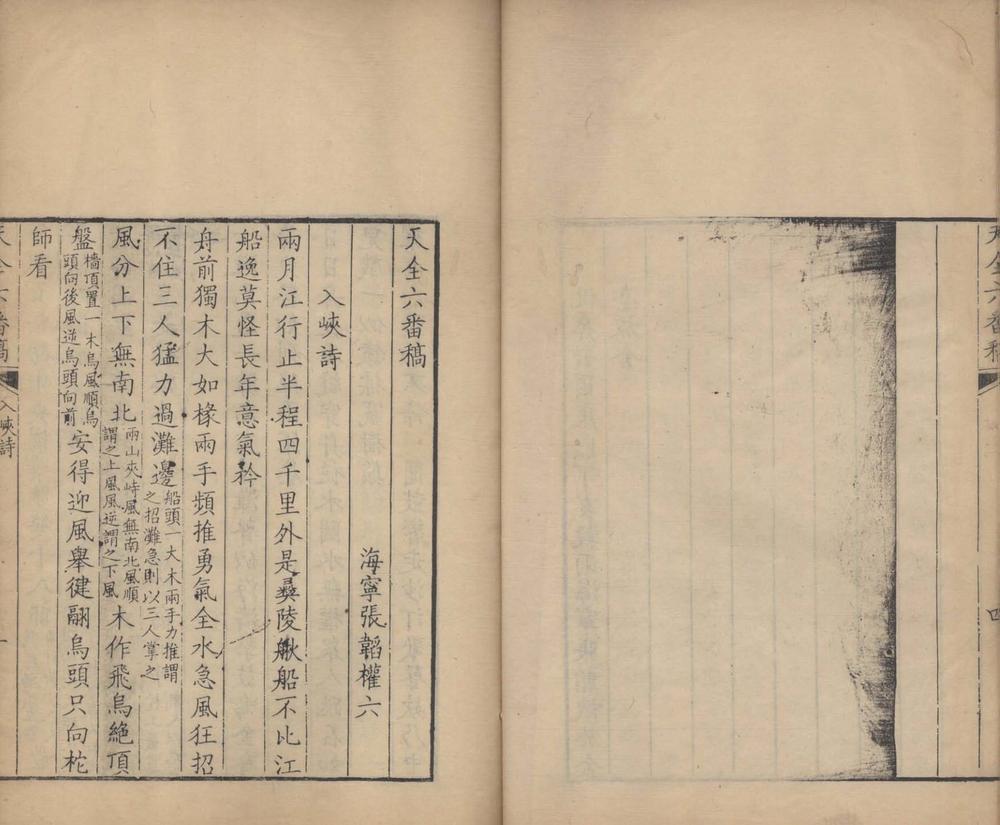 天全六番稿
四
天全六番稿
海寧張韜權六
入峽詩
兩月江行止半程四千里外是彝陵鰍船不比江
船逸莫怪長年意氣矜
舟前獨木大如椽兩手頻推勇氣全水急風狂招
不住三人猛力過灘邊船頭一大木兩手力推謂之招灘急則以三人掌之
風分上下無南北兩山夾峙風無南北風順謂之上風風逆謂之下風木作飛烏絶頂
盤檣頂置一木烏風順烏頭向後風逆烏頭向前安得迎風舉健翮烏頭只向柁
師看
天全六番稿
入峽詩
一